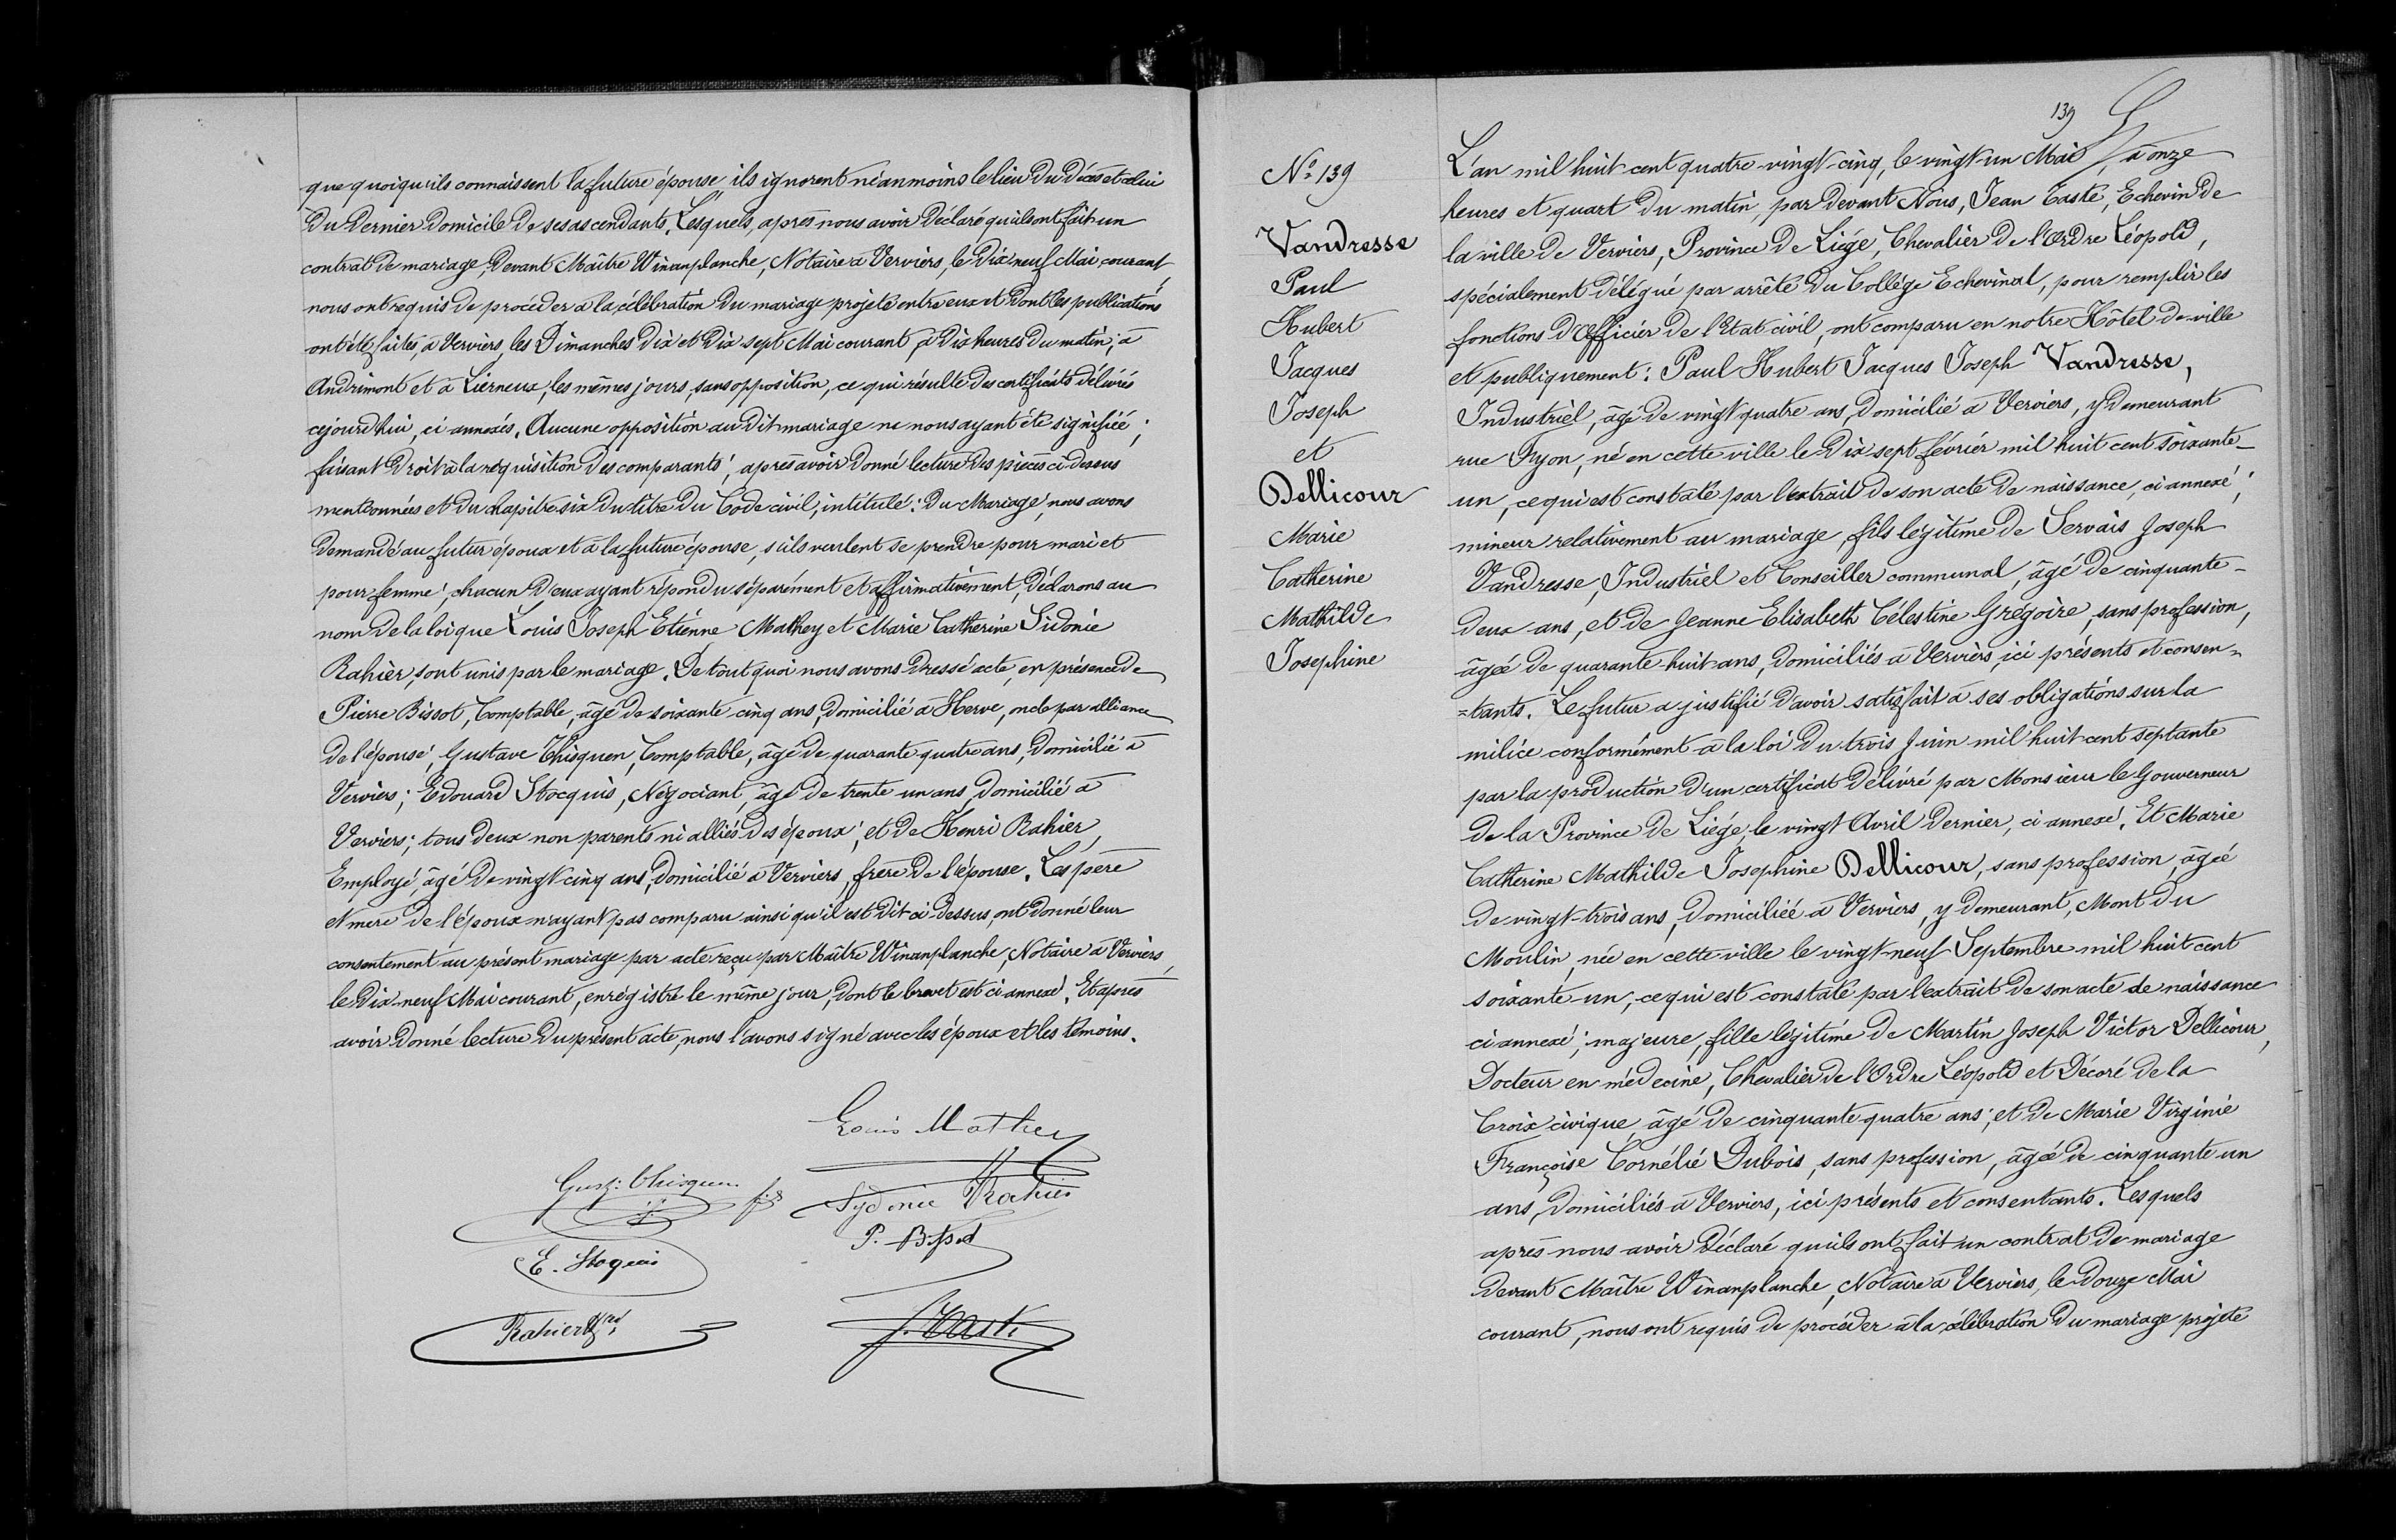 que quoiqu'ils connaissent la future épouse, ils ignorent néanmoins le lieu du décès et celui
du dernier domicile de ses ascendants. Lesquels, après nous avoir déclaré qu'ils ont fait un
contrat de mariage devant Maître Winanplanche, Notaire à Verviers, le dix neuf Mai courant,
nous ont requis de procéder à la célébration du mariage projeté entre eux et dont les publications
ont été faites, à Verviers, les Dimanches dix et dix sept Mai courant, à dix heures du matin; à
Andrimont et à Lierneux, les mêmes jours, sans opposition, ce qui résulte des certificats délivrés
cejourd'hui, ci annexés. Aucune opposition au dit mariage ne nous ayant été signifiée;
faisant droit à la réquisition des comparants, après avoir donné lecture des pièces ci dessus
mentionnées et du chapitre six du titre du Code civil, intitulé: Du Mariage, nous avons
demandé au futur époux et à la future épouse, s'ils veulent se prendre pour mari et
pour femme, chacun d'eux ayant répondu séparément et affirmativement, déclarons au
nom de la loi que Louis Joseph Etienne Mathey et Marie Catherine Sidonie
Rahier, sont unis par le mariage. De tout quoi nous avons dressé acte, en présence de
Pierre Bissot, Comptable, âgé de soixante cinq ans, domicilié à Herve, oncle par alliance
de l'épouse; Gustave Thisquen, Comptable, âgé de quarante quatre ans, domicilié à
Verviers; Edouard Stocquis, Négociant, âgé de trente un ans, domicilié à
Verviers; tous deux non parents ni alliés des époux; et de Henri Rahier,
Employé, âgé de vingt cinq ans, domicilié à Verviers, frère de l'épouse. Les père
et mère de l'époux n'ayant pas comparu ainsi qu'il est dit ci-dessus, ont donné leur
consentement au présent mariage par acte reçu par Maître Winanplanche, Notaire à Verviers,
le dix-neuf Mai courant, enregistré le même jour, dont le brevet est ci annexé. Et après
avoir donné lecture du présent acte, nous l'avons signé avec les époux et les témoins.
Louis Mathey
Gust: Thisquen
Sydonie Rahier
P. Bissot
E. Stoquis
Rahier Hri
J. Tasté
139
Nº 139
Vandresse
Paul
Hubert
Jacques
Joseph
et
Dellicour
Marie
Catherine
Mathilde
Josephine
L'an mil huit cent quatre-vingt-cinq, le vingt-un Mai, à onze
heures et quart du matin, par devant Nous, Jean Tasté, Echevin de
la ville de Verviers, Province de Liége, Chevalier de l'Ordre Léopold,
spécialement délégué par arrêté du Collège Echevinal, pour remplir les
fonctions d'Officier de l'Etat civil, ont comparu en notre Hôtel de ville
et publiquement: Paul Hubert Jacques Joseph Vandresse,
Industriel, âgé de vingt quatre ans, domicilié à Verviers, y demeurant
rue Fyon, né en cette ville le dix sept février mil huit cent soixante-
un, ce qui est constaté par l'extrait de son acte de naissance, ci annexé;
mineur relativement au mariage, fils légitime de Servais Joseph
Vandresse, Industriel et Conseiller communal, âgé de cinquante-
deux ans, et de Jeanne Elisabeth Célestine Grégoire, sans profession,
âgée de quarante-huit ans, domiciliés à Verviers, ici présents et consen-
=tants. Le futur a justifié d'avoir satisfait à ses obligations sur la
milice conformément à la loi du trois Juin mil huit cent septante
par la production d'un certificat délivré par Monsieur le Gouverneur
de la Province de Liége, le vingt Avril dernier, ci annexé. Et Marie
Catherine Mathilde Josephine Dellicour, sans profession, âgée
de vingt-trois ans, domiciliée à Verviers, y demeurant, Mont du
Moulin, née en cette ville le vingt-neuf Septembre mil huit cent
soixante-un, ce qui est constaté par l'extrait de son acte de naissance
ci annexé; majeure, fille légitime de Martin Joseph Victor Dellicour,
Docteur en médecine, Chevalier de l'Ordre Léopold et Décoré de la
Croix civique, âgé de cinquante quatre ans; et de Marie Virginie
Françoise Cornélie Dubois, sans profession, âgée de cinquante un
ans, domiciliés à Verviers, ici présents et consentants. Lesquels
après nous avoir déclaré qu'ils ont fait un contrat de mariage
devant Maître Winanplanche, Notaire à Verviers, le douze Mai
courant, nous ont requis de procéder à la célébration du mariage projeté